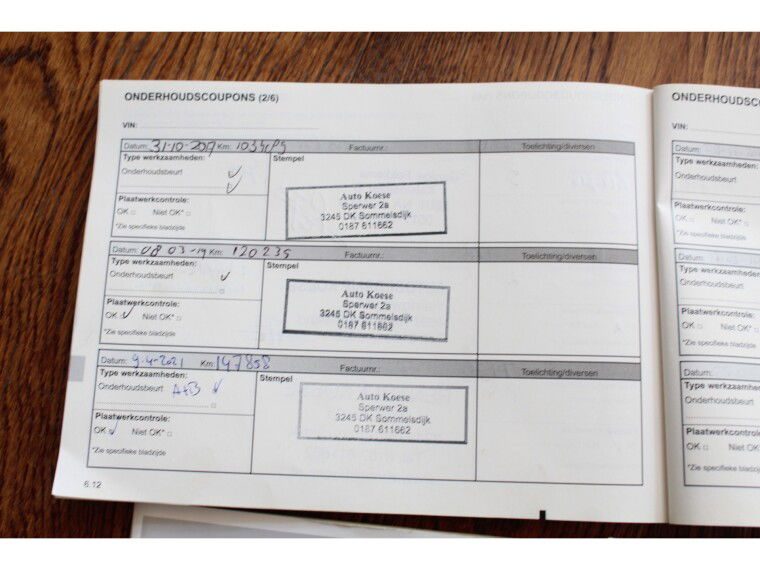 ONDERHOUDSCOUPONS (2/6)
VIN:
Datum: 31-10-2017 Km:
Factuurnr.:
Toelichting/diversen
Type werkzaamheden:
Onderhoudsbeurt
Stempel
Auto Koese
Sperwer 2a
3245 DK Sommelsdijk
0187 611662
Plaatwerkcontrole:
OK □ Niet OK* □
*Zie specifieke bladzijde
Datum: 08 03-19 Km: 120235
Factuurnr.:
Toelichting/diversen
Type werkzaamheden:
Onderhoudsbeurt
Stempel
Auto Koese
Sperwer 2a
3245 DK Sommelsdijk
0187 611662
Plaatwerkcontrole:
OK Niet OK* □
*Zie specifieke bladzijde
Datum: 9-4-2021 Km: 147858
Factuurnr.:
Toelichting/diversen
Type werkzaamheden:
Onderhoudsbeurt A+B
Stempel
Auto Koese
Sperwer 2a
3245 DK Sommelsdijk
0187 611662
Plaatwerkcontrole:
OK Niet OK* □
*Zie specifieke bladzijde
6.12
ONDERHOUDSC
VIN:
Datum:
Type werkzaamheden:
Onderhoudsbeurt
Plaatwerkcontrole:
OK □ Niet OK* □
*Zie specifieke bladzijde
Datum:
Type werkzaamheden:
Onderhoudsbeurt
Plaatwerkcontrole:
OK □ Niet OK* □
*Zie specifieke bladzijde
Datum:
Type werkzaamheden
Onderhoudsbeurt
Plaatwerkcontrole
OK □ Niet OK* □
*Zie specifieke bladzijde